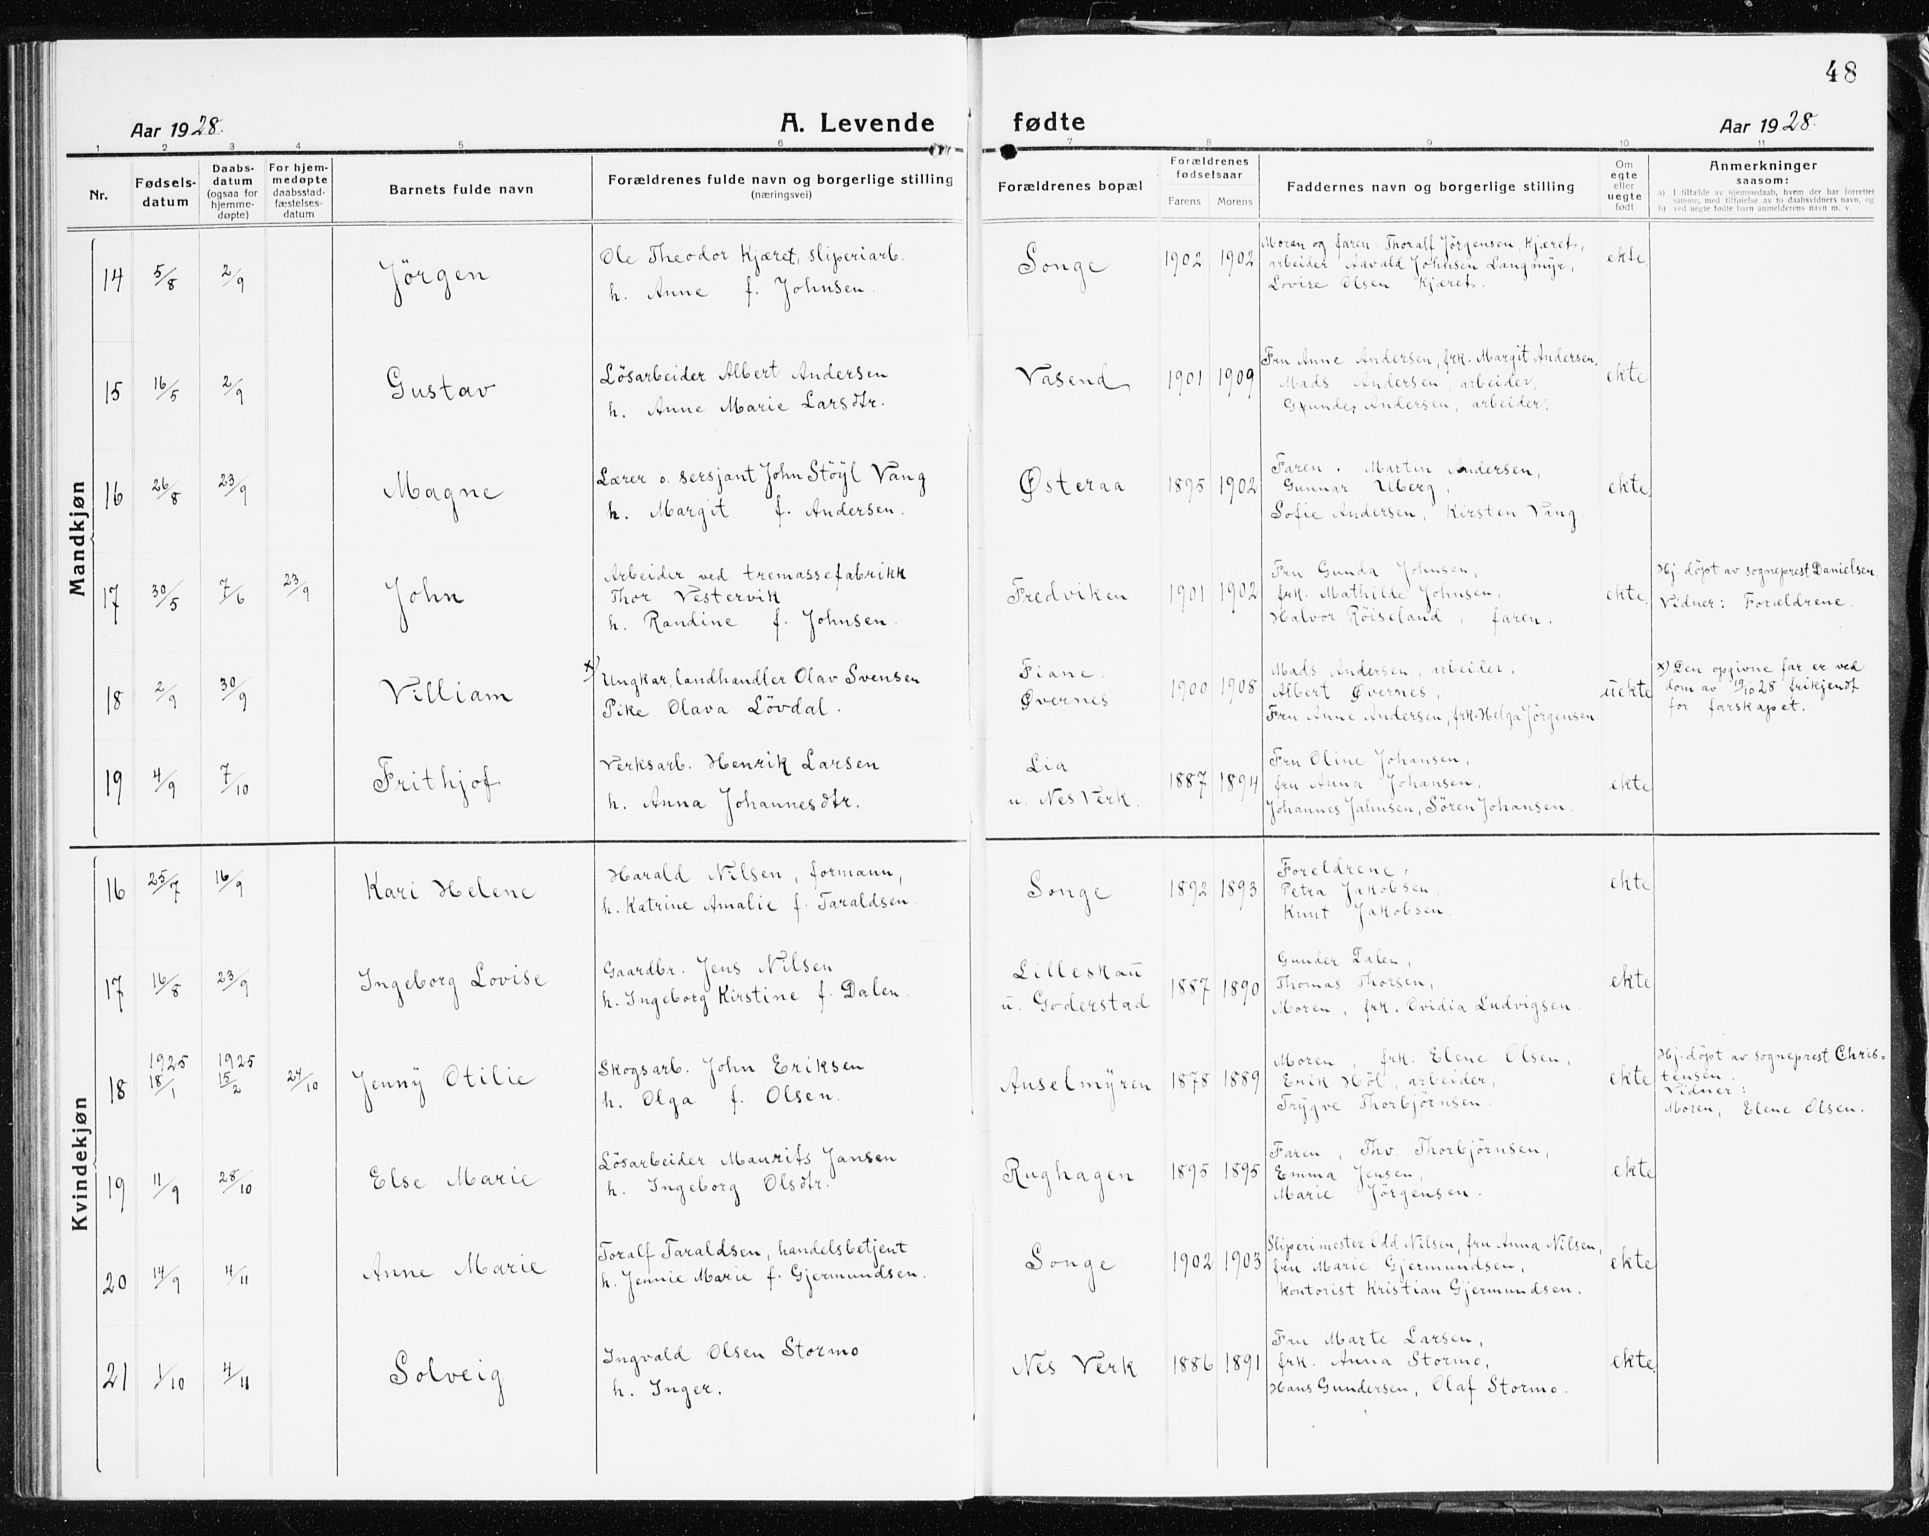 48
Aar 1928.
A. Levende
fødte
Aar 1928.
1 2 3 4 5 6 7 8 9 10 11
Nr.
Fødsels-
datum
Daabs-
datum
(ogsaa for
hjemme-
døpte)
For hjem-
medøpte
daabsstad-
fæstelses-
datum
Barnets fulde navn
Forældrenes fulde navn og borgerlige stilling
(næringsvei)
Forældrenes bopæl
Forældrenes
fødselsaar
Farens Morens
Faddernes navn og borgerlige stilling
Om
egte
eller
uegte
født
Anmerkninger
saasom:
a) I tilfælde av hjemmedaab, hvem der har forrettet
samme, med tilføielse av to daabsvidners navn, og
b) ved uegte fødte barn anmelderens navn m. v.
Mandkjøn
14 5/8 2/9 Jörgen
Ole Theodor Kjæret, sliperiarb.
h. Anne f. Johnsen.
Songe 1902 1902
Moren og faren. Thoralf Jörgensen, Kjæret,
arbeider Aavald Johnsen Langmyr,
Lovise Olsen Kjæret.
ekte
15 16/5 2/9 Gustav
Lösarbeider Albert Andersen
h. Anne Marie Larsdtr.
Vasend 1901 1909
Fru Anne Andersen, frk. Margit Andersen,
Mads Andersen, arbeider,
Gunder Andersen, arbeider.
ekte
16 26/8 23/9 Magne
Lærer o. sersjant John Stöyl Vang
h. Margit f. Andersen.
Østeraa 1895 1902
Faren, Martin Andersen,
Gunnar Uberg,
Sofie Andersen, Kirsten Vang
ekte
17 30/5 7/6 23/9 John
Arbeider ved tremassefabrikk
Thor Vestervik
h. Randine f. Johnsen.
Fredviken 1901 1902
Fru Gunda Johnsen,
frk. Mathilde Johnsen,
Halvor Röiseland, faren.
ekte
Hj. döpt av sogneprest Danielsen.
Vidner: Forældrene.
18 2/9 30/9 Villiam
x) Ungkar, landhandler Olav Svensen
Pike Olava Lövdal.
Fiane.
Øvernes. 1900 1908
Mads Andersen, arbeider,
Albert Øvernes,
Fru Anne Andersen, frk. Helga Jörgensen
uekte
x) Den opgivne far er ved
dom av 19/10 28 frikjendt
for farskapet.
19 4/9 7/10 Frithjof
Verksarb. Henrik Larsen
h. Anna Johannesdtr.
Lia
u. Nes Verk. 1887 1894
Fru Oline Johansen,
fru Anna Johansen,
Johannes Jahnsen, Sören Johansen.
ekte
Kvindekjøn
16 25/7 16/9 Kari Helene
Harald Nilsen, formann,
h. Katrine Amalie f. Taraldsen.
Songe 1892 1893
Foreldrene,
Petra Jakobsen,
Knut Jakobsen.
ekte
17 16/8 23/9 Ingeborg Lovise
Gaardbr. Jens Nilsen
h. Ingeborg Kirstine f. Dalen.
Lilleskau
u. Goderstad 1887 1890
Gunder Dalen,
Thomas Thorsen,
Moren, frk. Ovidia Ludvigsen.
ekte
18 1925 18/1 1925 15/2 24/10 Jenny Otilie
Skogsarb. John Eriksen
h. Olga f. Olsen.
Anselmyren 1878 1889
Moren, frk. Elene Olsen,
Erik Höl, arbeider,
Trygve Thorbjörnsen.
ekte
Hj. döpt av sogneprest Chris-
tensen.
Vidner:
Moren, Elene Olsen.
19 11/9 28/10 Else Marie
Lösarbeider Maurits Jansen
h. Ingeborg Olsdtr.
Rughagen 1895 1895
Faren, Thv. Thorbjörnsen,
Emma Jensen,
Marie Jörgensen.
ekte
20 14/9 4/11 Anne Marie
Toralf Taraldsen, handelsbetjent
h. Jennie Marie f. Gjermundsen.
Songe 1902 1903
Sliperimester Odd Nilsen, fru Anna Nilsen,
fru Marie Gjermundsen,
kontorist Kristian Gjermundsen.
ekte
21 1/10 4/11 Solveig
Ingvald Olsen Stormo
h. Inger.
Nes Verk 1886 1891
Fru Marte Larsen,
frk. Anna Stormo,
Hans Gundersen, Olaf Stormo.
ekte